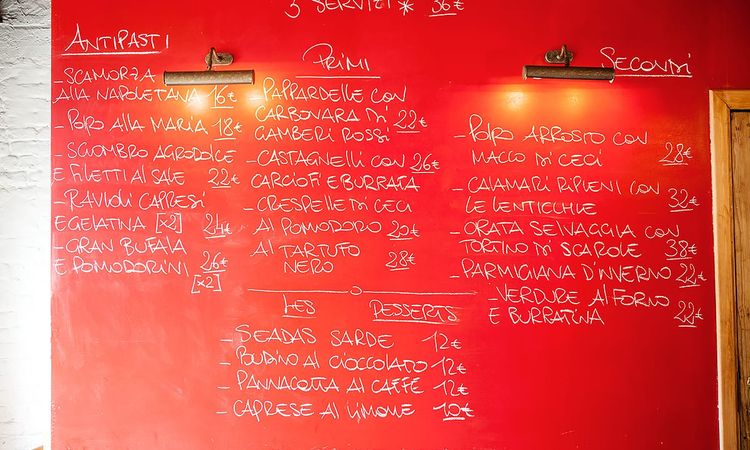 3 SERVIZI * 36€
ANTIPASTI
- SCAMORZA
ALLA NAPOLETANA 16€
- POLPO ALLA MARIA 18€
- SGOMBRO AGRODOLCE
E FILETTI AL SALE 22€
- RAVIOLI CAPRESI
E GELATINA [x2] 24€
- GRAN BUFALA
E POMODORINI 26€
[x2]
PRIMI
- PAPPARDELLE CON
CARBONARA DI 22€
GAMBERI ROSSI
- CASTAGNELLI CON 26€
CARCIOFI E BURRATA
- CRESPELLE DI CECI
AL POMODORO 20€
AL TARTUFO
NERO 28€
SECONDI
- POLPO ARROSTO CON
MACCO DI CECI 28€
- CALAMARI RIPIENI CON
LE LENTICCHIE 32€
- ORATA SELVAGGIA CON
TORTINO DI SCAROLE 38€
- PARMIGIANA D'INVERNO 22€
- VERDURE AL FORNO
E BURRATINA 22€
LES DESSERTS
- SEADAS SARDE 12€
- BUDINO AL CIOCCOLATO 12€
- PANNACOTTA AL CAFFÈ 12€
- CAPRESE AL LIMONE 10€